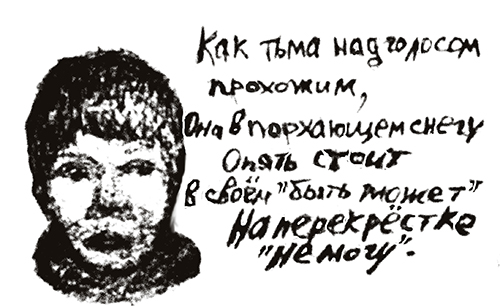 Как тьма над голосом
прохожим,
Она в порхающем снегу
Опять стоит
в своём "быть может"
На перекрёстке
"не могу".